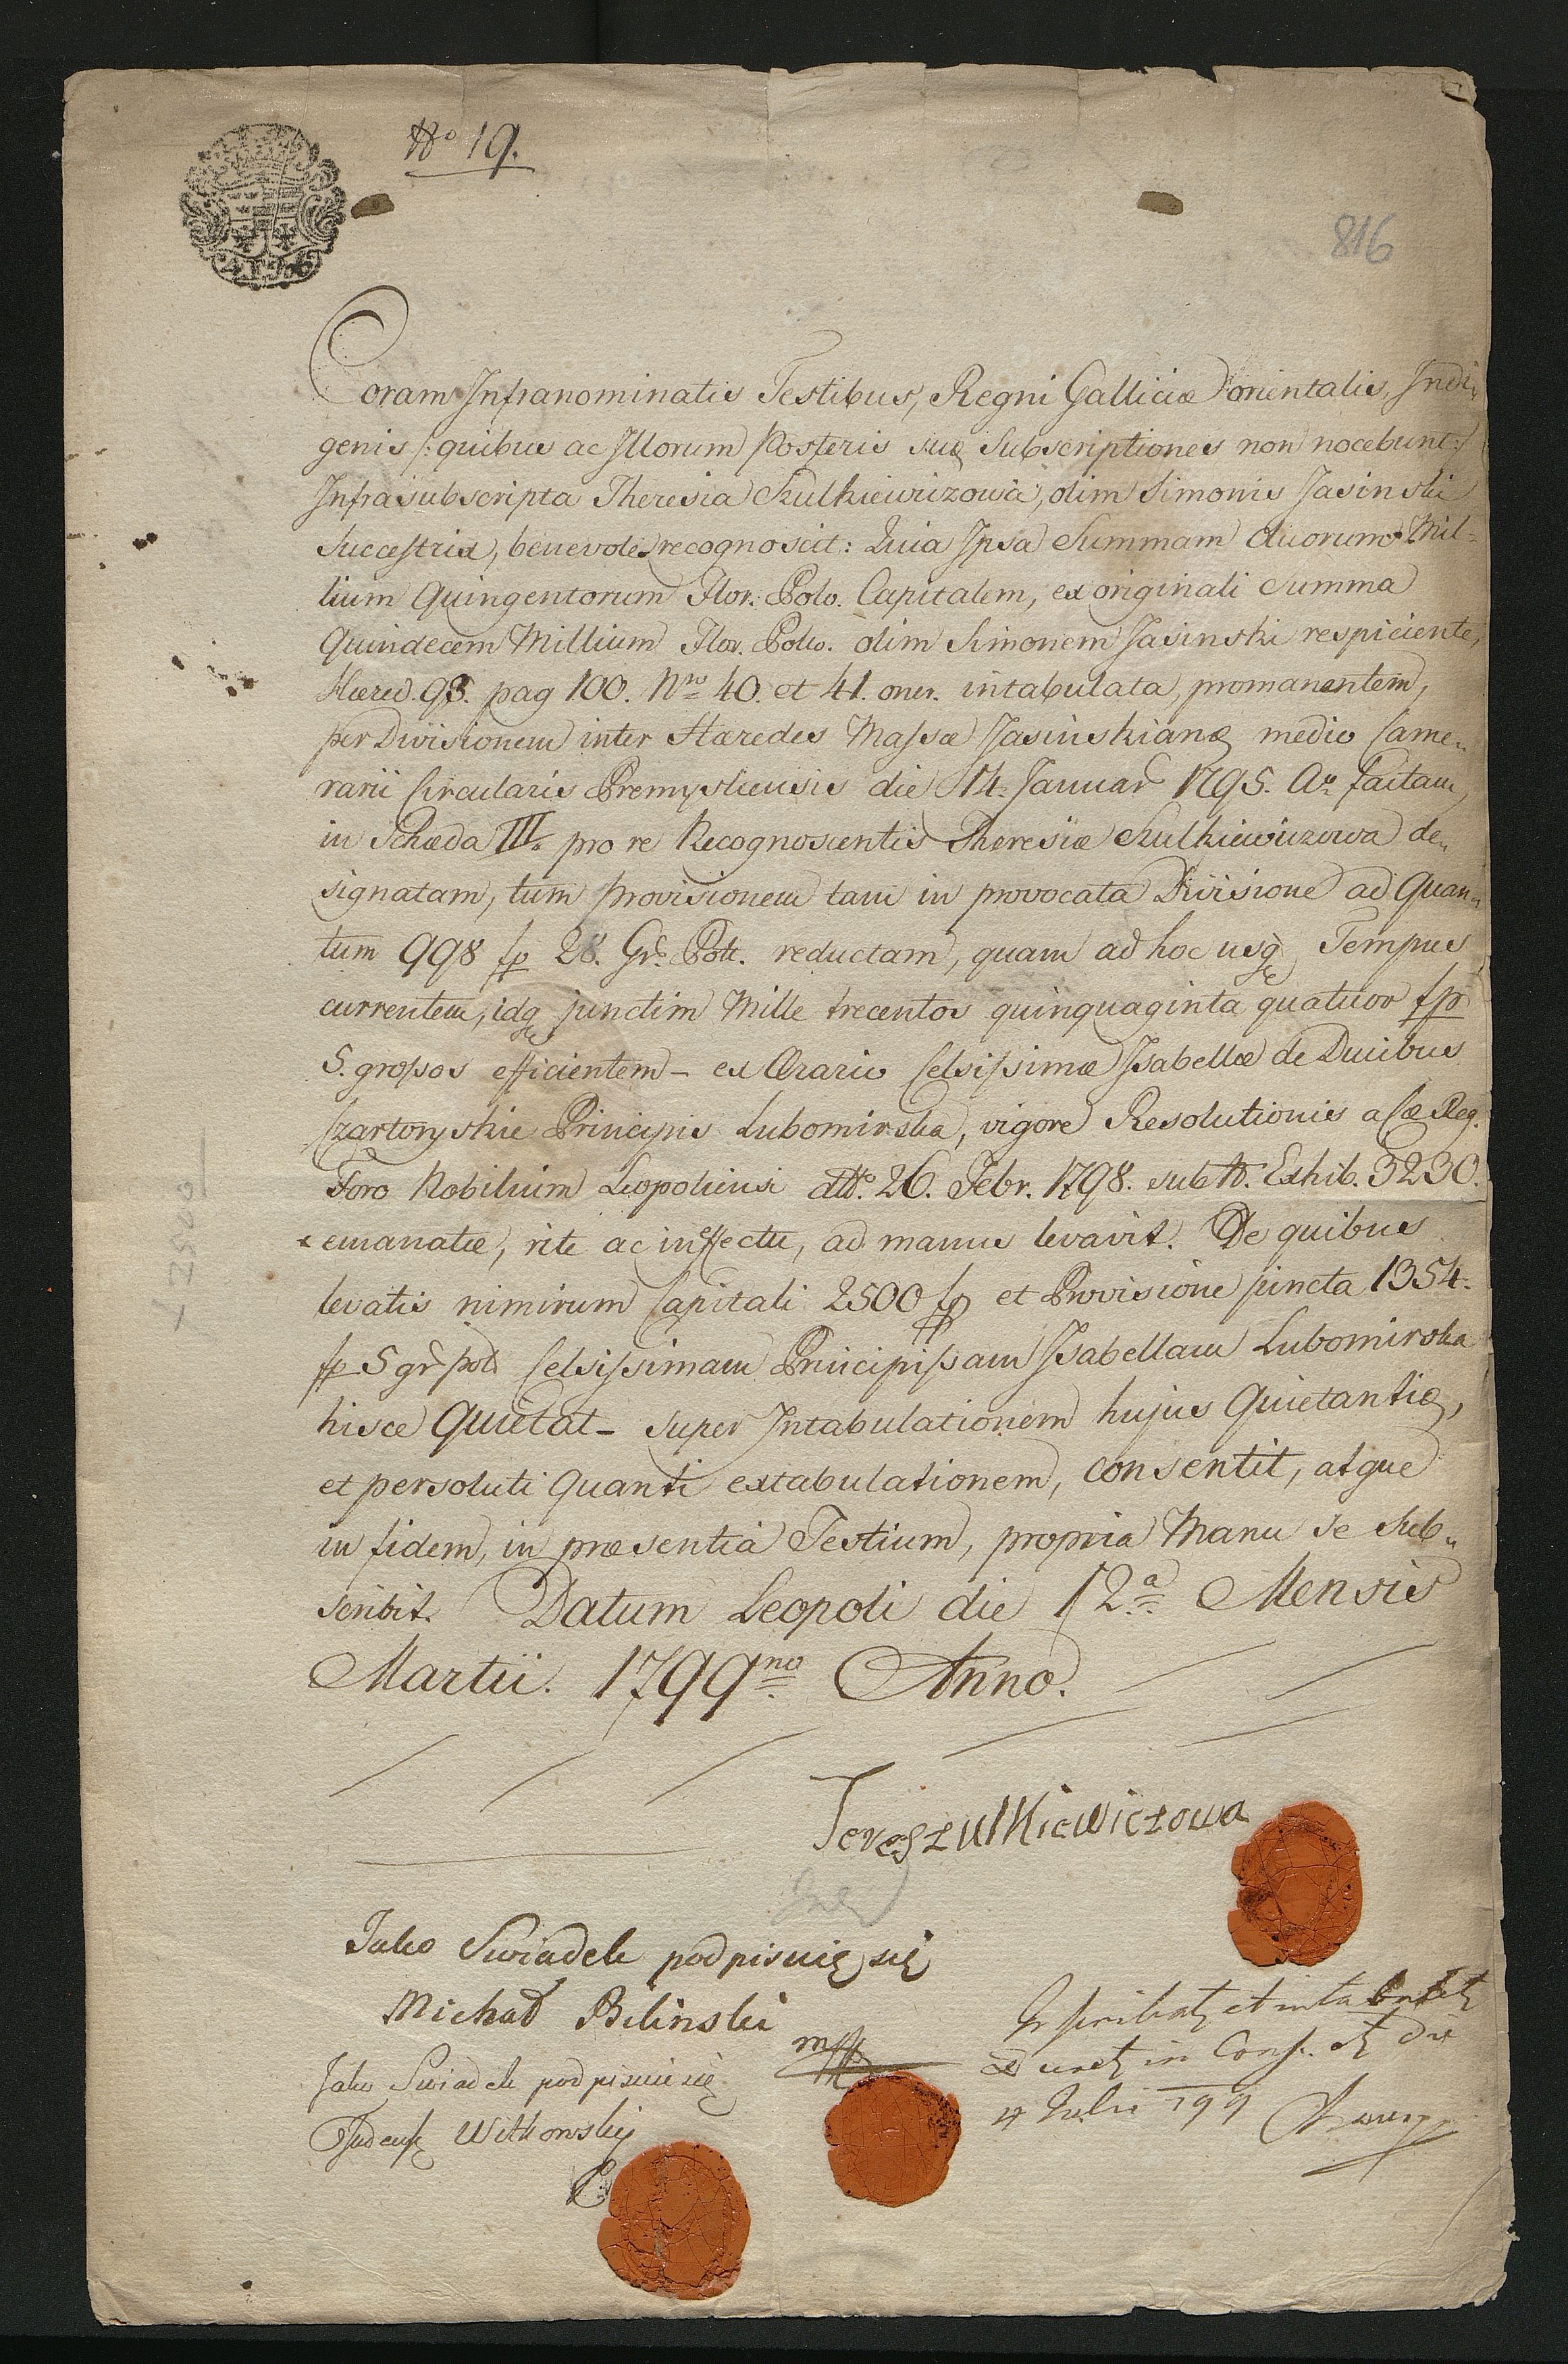 No 19.
816
Coram Infranominatis Testibus, Regni Galliciæ orientalis, Indi„
genis /: quibus ac Illorum Posteris suæ Subscriptiones non nocebunt :/
Infrasubscripta Theresia Szulkiewiczowa, olim Simonis Jasinski
Succestrix, benevole recognoscit: Quia Ipsa Summam duorum Mil-
lium Quingentorum Flor. Polo. Capitalem, ex originali Summa
Quindecem Millium Flor. Polo. olim Simonem Jasinski respiciente,
Hæred. 93. pag 100. Nro 40. et 41. oner. intabulata, promanentem,
per Divisionem inter Hæredes Massæ Jasinskianæ medio Came„
rarii Circularis Premysliensis die 14. Januar 1795. Ao factam,
in Scheda III. pro re Recognoscentis Theresiæ Szulkiewiczowa de„
signatam, tum Provisionem tam in provocata Divisione ad Quan„
tum 998 fp 28. Gr. Poll. reductam, quam ad hoc usq Tempus
currentem, idq junctim Mille trecentos quinquaginta quatuor fp
5. grossos efficientem – ex Ærario Celsissimæ Isabellæ de Ducibus
Czartoryskie Principis Lubomirska, vigore Resolutionis a Cæ Reg.
Foro Nobilium Leopoliensi ddto. 26. Febr. 1798. sub N. Exhib. 3230.
emanatæ, rite ac in effectu, ad manus levavit. De quibus
levatis nimirum Capitali 2500 fp et Provisione juncta 1354.
fp 5 gr pol Celsissimam Principissam Isabellam Lubomirska
hisce Quietat – super Intabulationem hujus Quietantiæ,
et persoluti Quanti extabulationem, consentit, atque
in fidem, in præsentia Testium, propria Manu se Sub„
scribit. Datum Leopoli die 12a Mensis
Martii. 1799no Anno.
2500
Tere Szulkiewiczowa
Jako Swiadek podpisuię się
Michał Bilinski
mp
Jako Swiadek podpisuie się
Tadeusz Witkowski
et
in Cons.
4 Julii 799